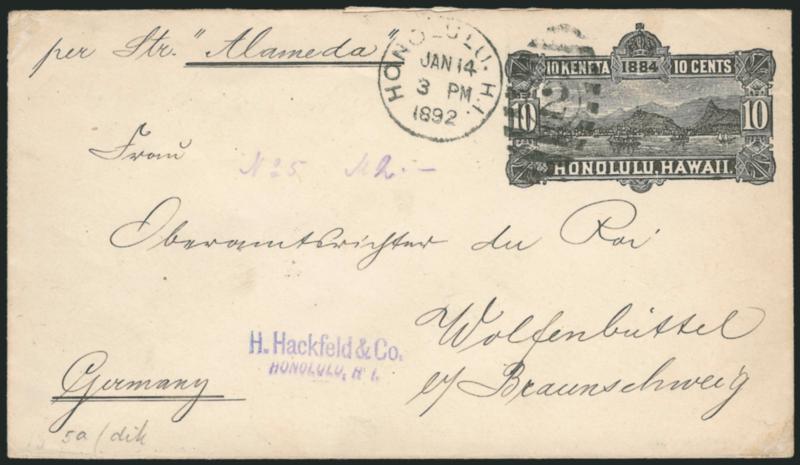 per Str. "Alameda"
HONOLULU. H.I.
JAN 14
3 PM
1892
10 KENETA 1884 10 CENTS
10 2 10
HONOLULU, HAWAII.
Frau
No 5 M 2.—
Oberamtsrichter du Roi
Wolfenbüttel
H. Hackfeld & Co.
HONOLULU, H I.
Germany
Braunschweig
5a / dik